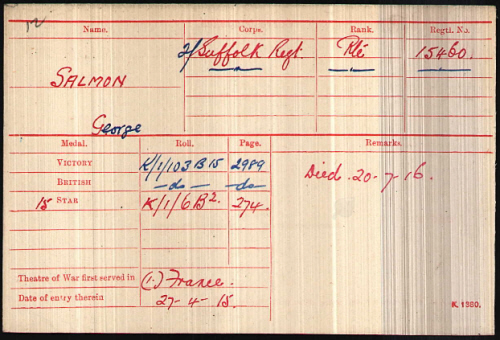 12
Name. Corps. Rank. Regtl. No.
SALMON 2/Suffolk Regt. Pte 15460.
George
Medal. Roll. Page. Remarks.
VICTORY K/1/103 B 15 2989 Died. 20-7-16.
BRITISH -do- -do-
15 STAR K/1/6 B2. 274.
Theatre of War first served in (1.) France.
Date of entry therein 27-4-15.
K. 1380.